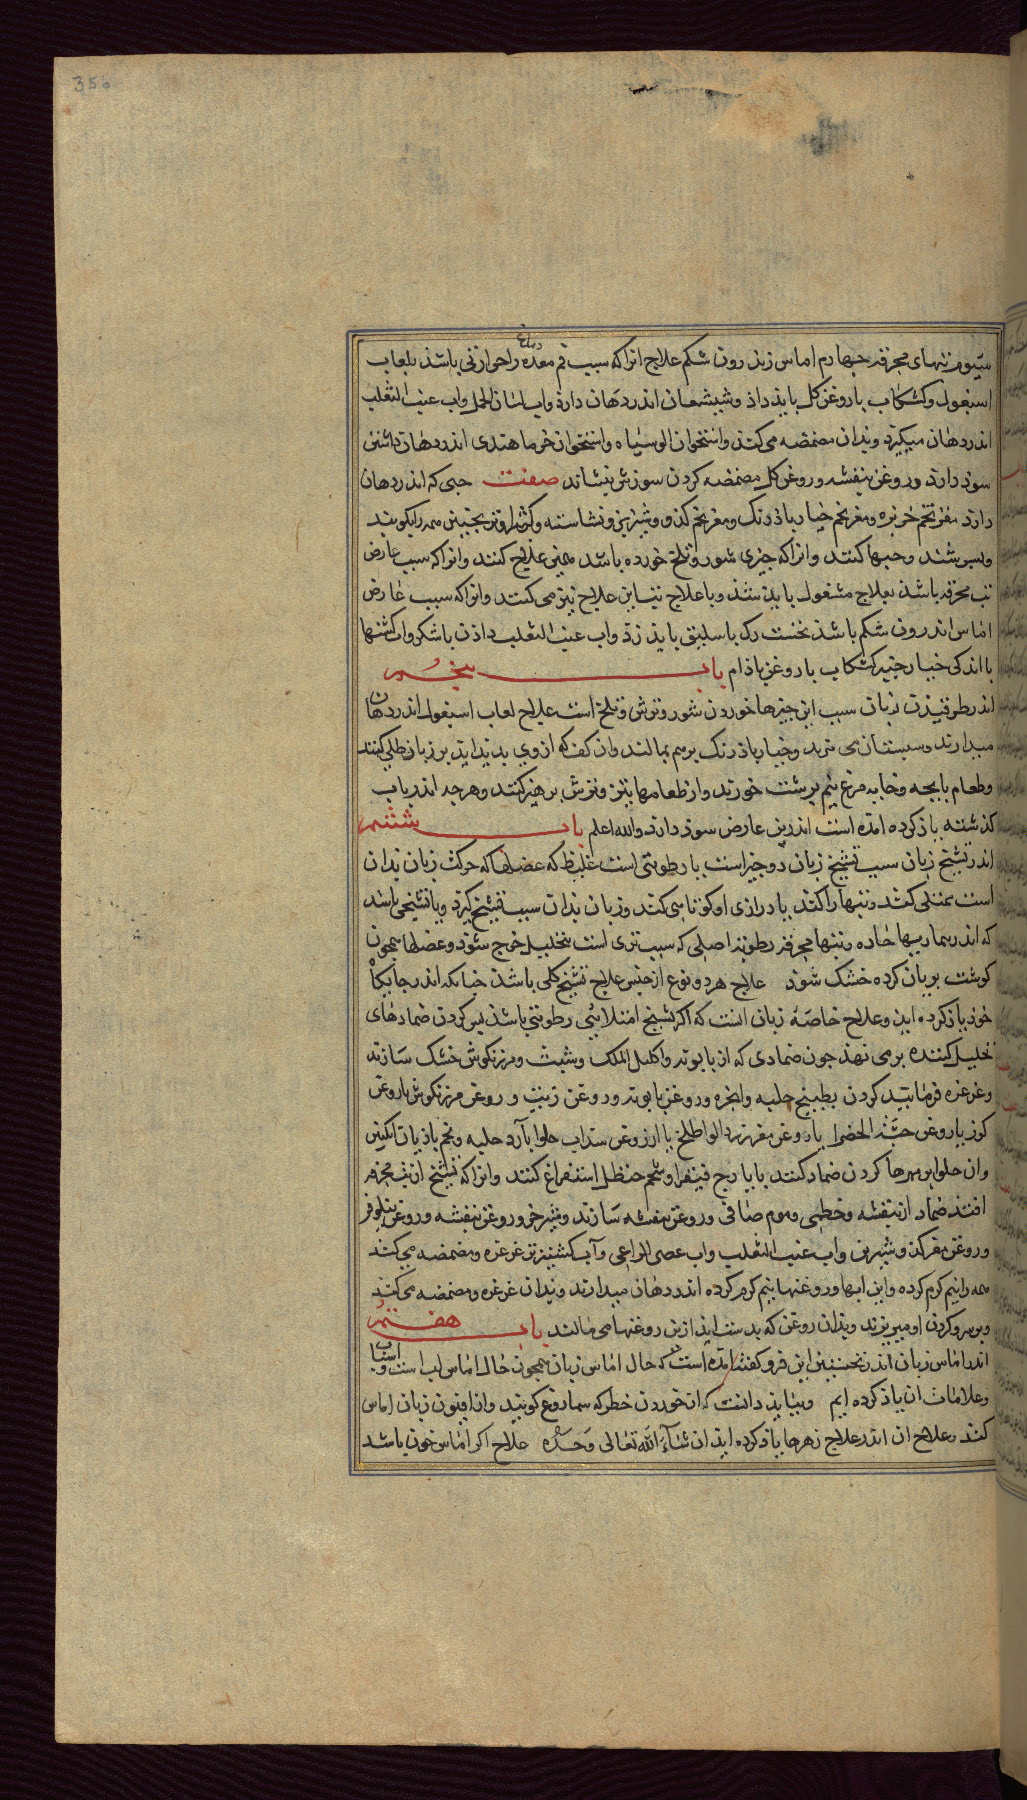 356
دماغ
سیوم تبهای محرقه چهارم اماس زبد رون شکم علاج انرا که سبب فم معده را حرارتی باشد بلعاب
اسبغول وکشکاب با روغن کل باید داد و شیشعان اندر دهان دارد واب لسان الحمل واب عنب الثعلب
اندر دهان میکیرد وبدان مضمضه می کند واستخوان الوسیاه واستخوان خرما هندی اندر دهان داشتن
سود دارد و روغن بنفشه و روغن کل مضمضه کردن سوزش بنشاند صفت حبی که اندر دهان
دارد مغز تخم خربزه ومغز تخم خیار باذرنک ومغز تخم کدو وشیرین ونشاسته وکثیرا وترنجبین همه را بکوبند
وبسریشند وحبها کنند وانرا که چیزی شور وتلخ خورده باشد همین علاج کنند وانرا که سبب عارض
تب محرقه باشد بعلاج مشغول باید شد وبا علاج تب این علاج نیز می کنند وانرا که سبب عارض
اماس اندرون شکم باشد نخست رک باسلیق باید زد واب عنب الثعلب دادن با شکر واب کشنها
با اندکی خیار چنبر کشکاب با روغن باذام باب پنجم
اندر طرقیدن زبان سبب این چیزها خوردن شور وترش وتلخ است علاج لعاب اسبغول اندر دهان
میدارند وسبستان می مزند وخیار باذرنک برهم بمالند وان کف که ازوی بدید اید بر زبان طلی کنند
وطعام پایچه وخایه مرغ نیم برشت خورند واز طعامها تیز وترش برهیز کنند وهرچه اندر باب
کذشته یاذ کرده امده است اندرین عارض سود دارد والله اعلم باب ششم
اندر تشنج زبان سبب تشنج زبان دو چیز است یا رطوبتی است غلیظ که عضلها که حرکت زبان بدان
است ممتلی کند وتنها را کند یا درازی او کوتاهی کند وزبان بدان سبب تشنج کیرد ویا تشنجی باشد
که اندر بیماریها حاده وتبها محرقه رطوبت اصلی که سبب تری است بتحلیل خرج شود وعضلها همچون
کوشت بریان کرده خشک شود علاج هر دو نوع از جنس علاج تشنج کلی باشد چنانکه اندر جایکاه
خود یاذ کرده اید وعلاج خاصه زبان انست که اکر تشنج امتلایی رطوبتی باشد پس کردن ضمادهای
تحلیل کننده برمی نهد چون ضمادی که از بابونه واکلیل الملک وشبث ومرزنکوش خشک سازند
وغرغره فرمایند کردن بطبیخ حلبه وانجره وروغن بابونه وروغن زنبق وروغن مرزنکوش با روغن
کوز یا روغن حبة الخضرا یا روغن مغز زرد الو اطلخ یا از روغن سداب حلوا بآرد حلبه وتخم باذیان انکبین
وان حلوا بر مهرها کردن ضماد کنند بایارج فیقرا وشحم حنظل استفراغ کنند وانرا که تشنج از تب محرقه
افتد ضماد از بنفشه وخطمی وموم صافی وروغن بنفشه سازند وشیر خر وروغن بنفشه وروغن نیلوفر
وروغن مغز کدو وشیرین واب عنب الثعلب واب عصی الراعی وآب کشنیز تر غرغره ومضمضه می کنند
همه را نیم کرم کرده واین ابها وروغنها نیم کرم کرده اندر دهان میدارند وبدان غرغره ومضمضه می کنند
وبر سر وکردن او میریزند وبدان روغن که بدست اید ازین روغنها می مالند باب هفتم
اندر اماس زبان اندر نخستین این فرو کفته امده است که حال اماس زبان همچون حال اماس لب است واسباب
وعلامات ان یاذ کرده ایم وبباید دانست که از خوردن خطر که سماروغ کویند واز افیون زبان اماس
کند وعلاج ان اندر علاج زهرها یاذ کرده اید ان شاء الله تعالی وحده علاج اکر اماس خونی باشد